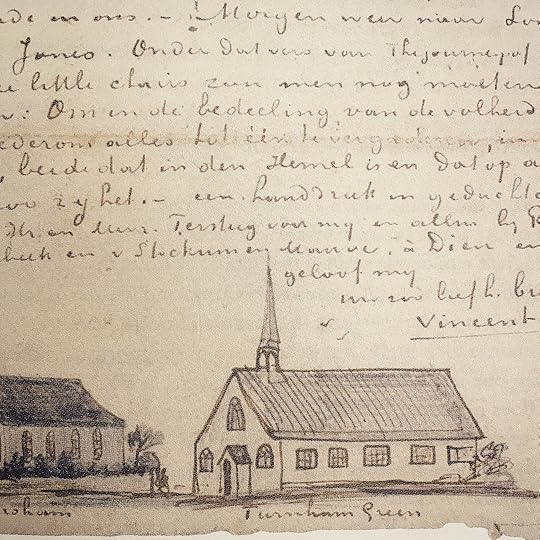 en ons. — Morgen weer naar
Jones. Onder dat vers van The journey of
little chairs zou men nog moeten
: Om in de bedeeling van de volheid
wederom alles tot één te vergaderen, in
, beide dat in den Hemel is en dat op a
zoo zij het. — een handdruk in gedachte
Mr. en Mevr. Tersteeg voor my en allen bij
en v Stockum en Mauve. à Dieu en
geloof my
uw zoo liefh. br
Vincent
Turnham Green